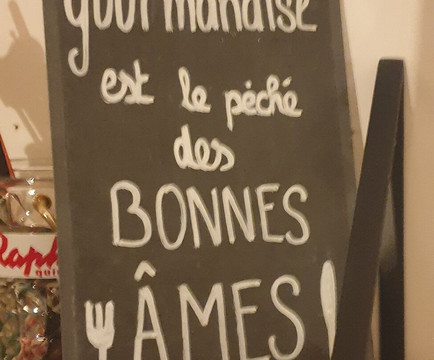 gourmandise
est le péché
des
BONNES
ÂMES
Raph